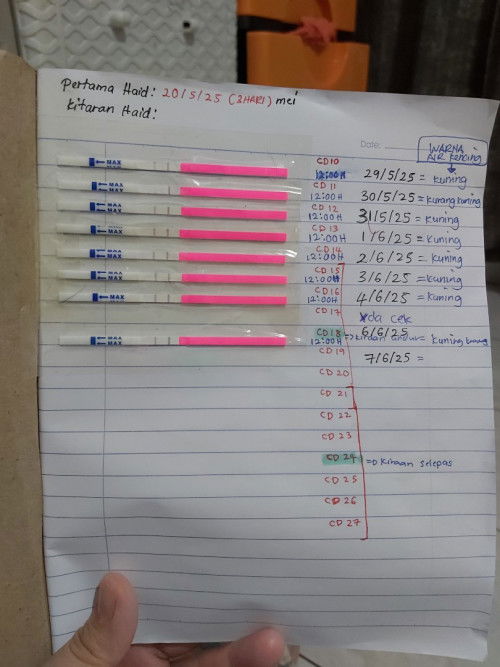 Pertama Haid: 20/5/25 (3HARI) mei
Kitaran Haid:
Date:
WARNA
AIR kencing
MAX CD10 12:00H 29/5/25 = kuning
MAX CD 11 12:00H 30/5/25 = kurang kuning
MAX CD 12 12:00H 31/5/25 = kuning
MAX CD 13 12:00H 1/6/25 = kuning
MAX CD 14 12:00H 2/6/25 = kuning
MAX CD 15 12:00H 3/6/25 = kuning
MAX CD 16 12:00H 4/6/25 = kuning
CD 17 xda cek
MAX CD 18 12:00H 6/6/25 = kuning
CD 19 7/6/25 =
CD 20
CD 21
CD 22
CD 23
CD 24 => kiraan selepas
CD 25
CD 26
CD 27